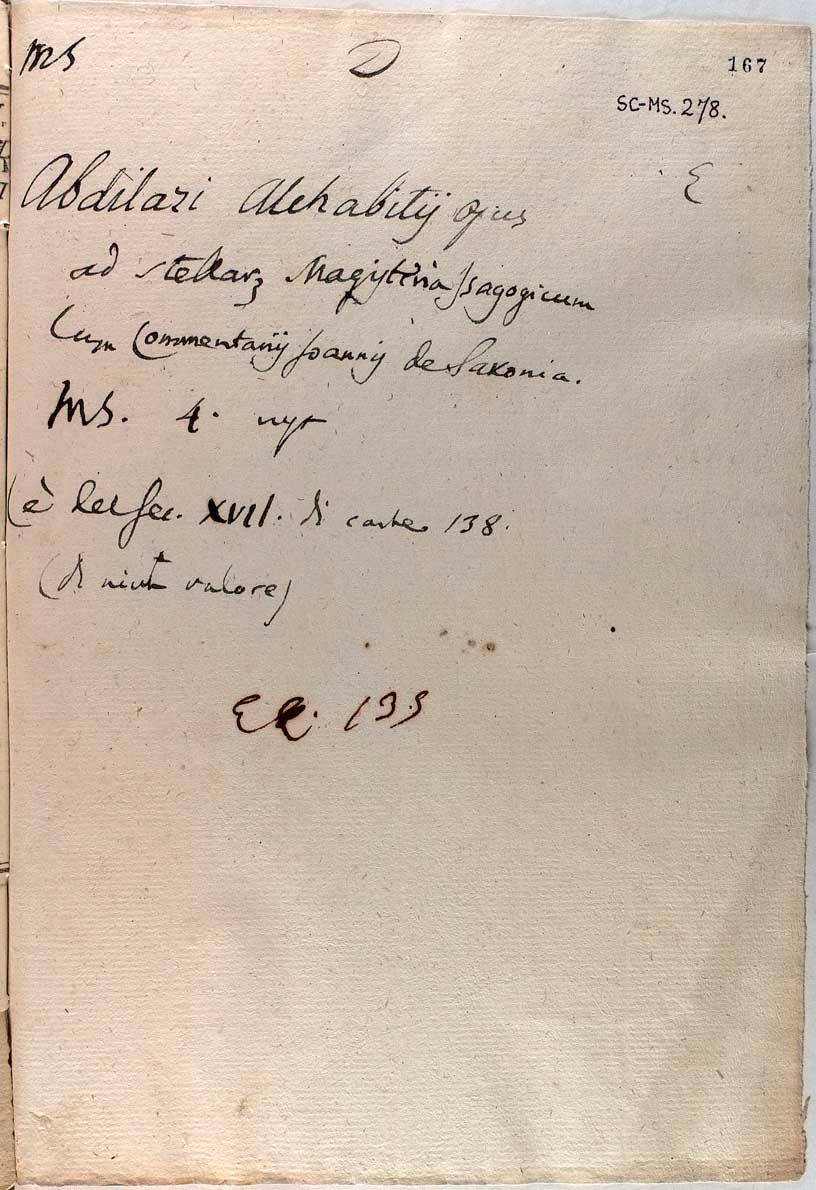 MS D 167
SC-MS. 278.
Abdilazi Alchabitij opus E
ad stellarꝝ Magisteria Isagogicum
Cum Commentarijs Joannis de Saxonia.
MS. 4.
(è del Sec. XVII. di carte 138.
(di niun valore)
135